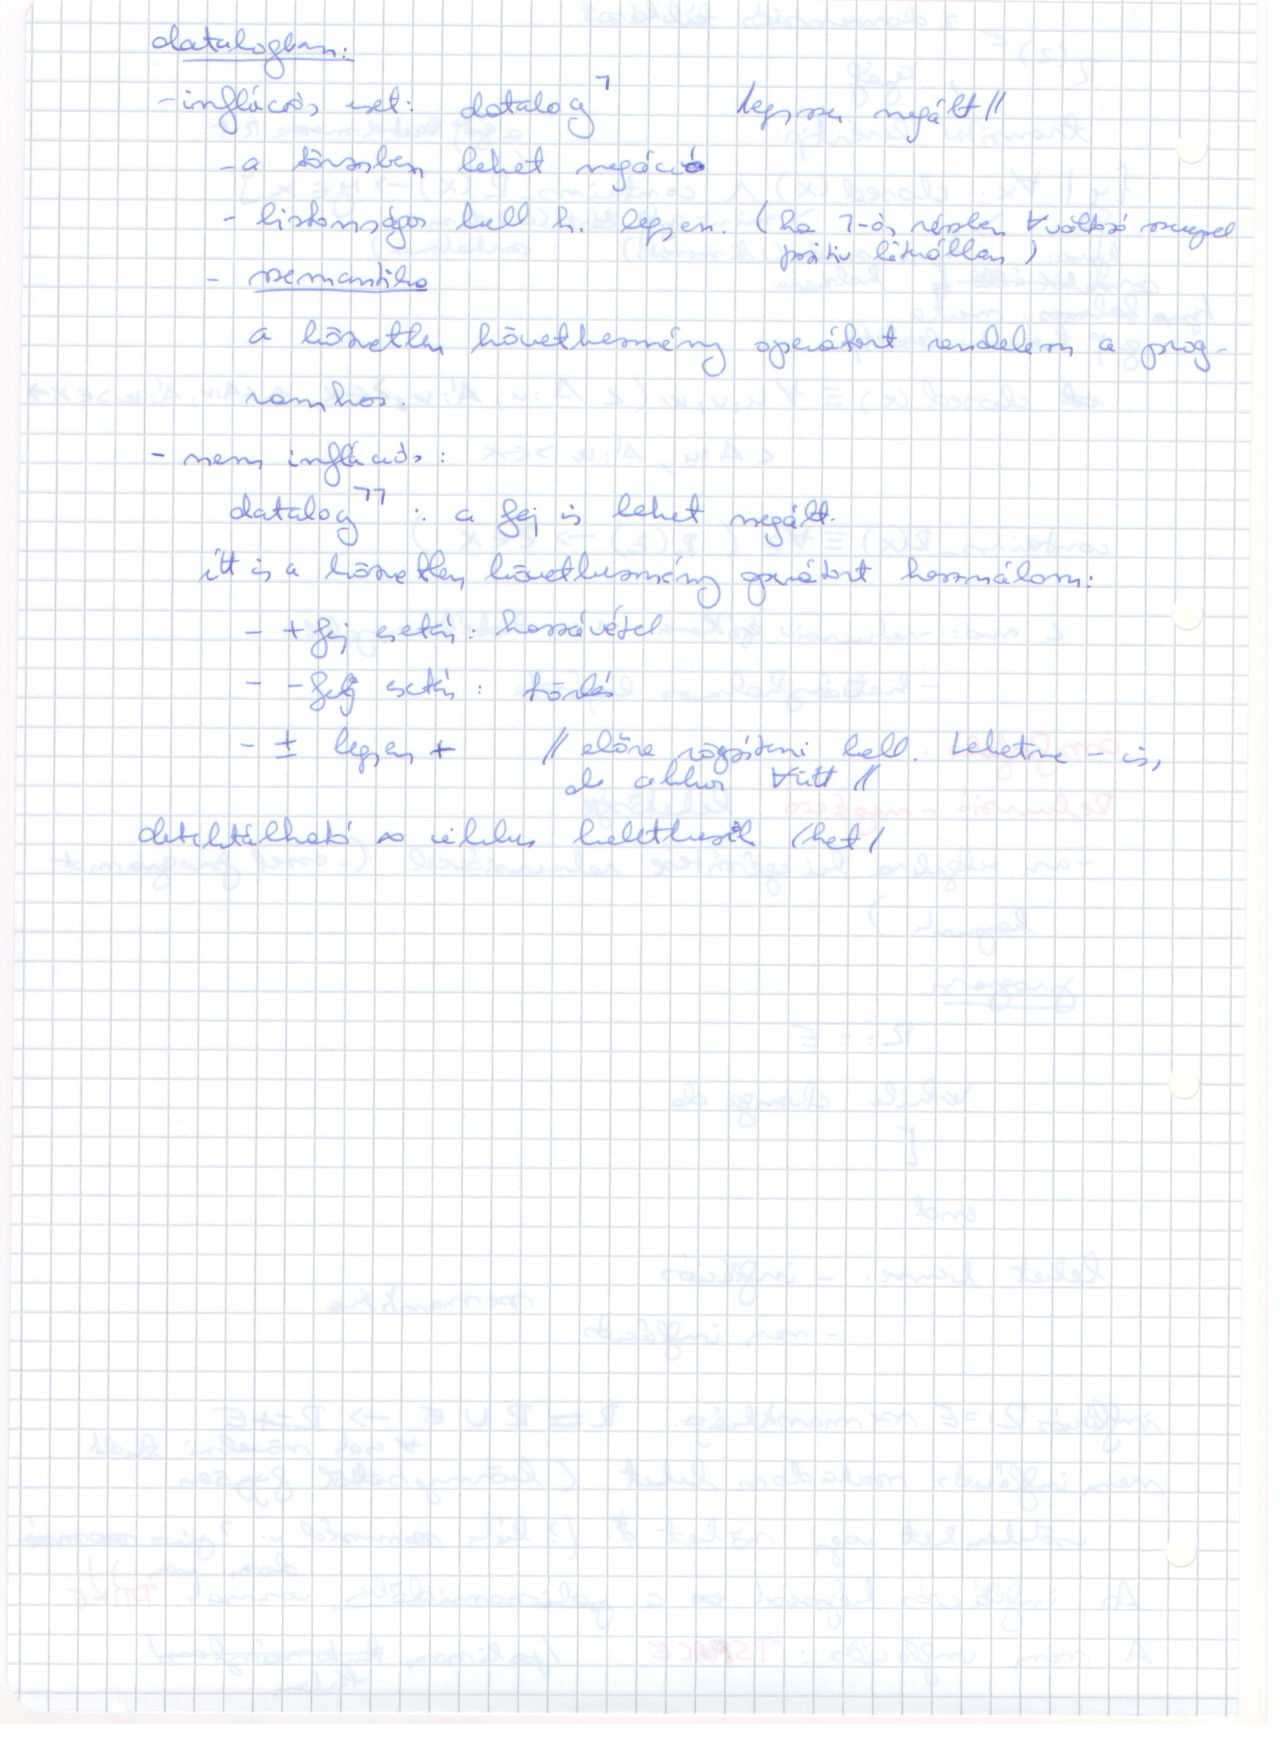 datalogban:
- inflációs eset: datalog¬ legyen negált //
- a törzsben lehet negáció
- biztonságos kell h. legyen. (ha ¬-ós részben ∀ változó szerepel
pozitív literálban)
- szemantika
a közvetlen következmény operátort rendelem a prog-
ramhoz.
- nem inflációs:
datalog¬¬ : a fej is lehet negált.
itt is a közvetlen következmény operátort használom:
- + fej esetén: hozzávétel
- - fej esetén: törlés
- ± legyen + // előre rögzíteni kell. Lehetne - is,
de akkor ∀ütt //
detektálható ∞ ciklus keletkezik (het)